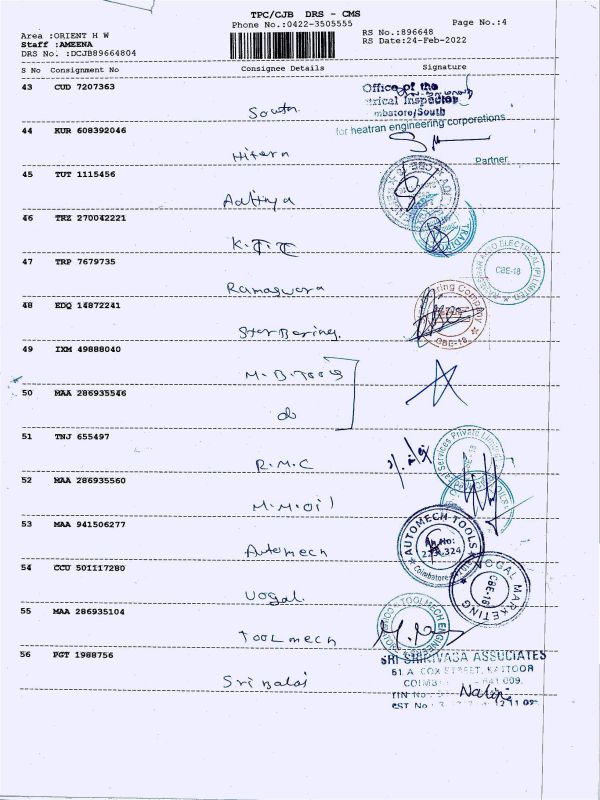 TPC/CJB DRS - CMS
Phone No.:0422-3505555
Page No.:4
Area :ORIENT H W
Staff :AMEENA
DRS No. :DCJB89664804
RS No.:896648
RS Date:24-Feb-2022
S No Consignment No Consignee Details Signature
43 CUD 7207363
South
Office of the
Electrical Inspector
mbatore/South
44 KUR 608392046
for heatran engineering corporations
Hitern
Partner
45 TUT 1115456
Aaditya
46 TRZ 270042221
TRADING
47 TRP 7679735
Ramaswara
RAJESHWAR AND ELECTRICAL (P) LIMITED
CBE-18
48 EDQ 14872241
Star Bearing.
ring Company
CBE-18
49 IXM 49888040
M.B.Tools
50 MAA 286935546
do
51 TNJ 655497
R.M.C
Services Private Limited
52 MAA 286935560
M.M.Oil
53 MAA 941506277
Automech
AUTOMECH TOOLS
Ph No:
Coimbatore
54 CCU 501117280
Vogal
VOGAL MARKETING
CBE-18
55 MAA 286935104
Toolmech
TOOLMECH ENGINEE
56 PGT 1988756
Sri Balaji
SRI SRINIVASA ASSOCIATES
61 A COX STREET, KATTOOR
COIMB 641 009.
TIN No
Nalini
CST No